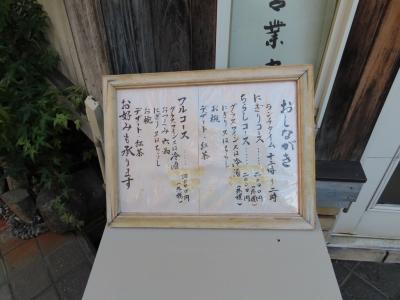 営業中
おしながき
ランチタイム 十二時〜二時
にぎりコース……
ちらしコース……
グラスワイン又は冷酒
にぎり又はちらし
お椀
デザート・紅茶
フルコース……
グラスワイン又は冷酒
おつまみ六種
にぎり又はちらし
お椀
デザート 紅茶
お好みも承ります